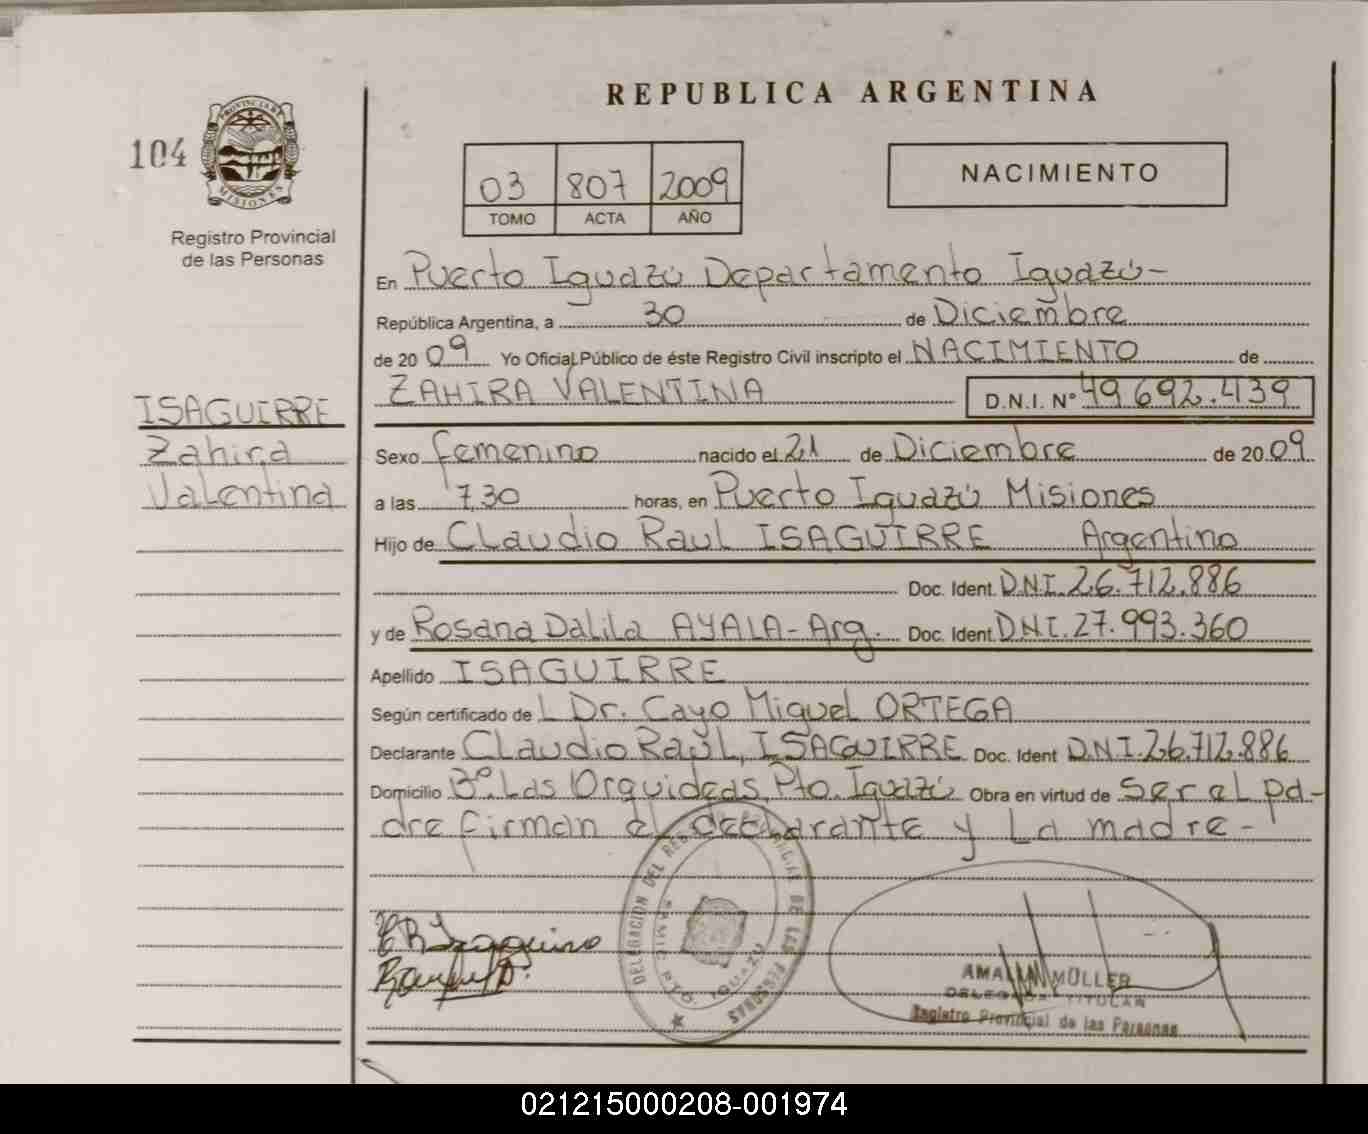 REPUBLICA ARGENTINA
104
PROVINCIA DE
MISIONES
Registro Provincial
de las Personas
03 807 2009
TOMO ACTA AÑO
NACIMIENTO
En Puerto Iguazú Departamento Iguazú-
República Argentina, a 30 de Diciembre
de 2009 Yo Oficial Público de éste Registro Civil inscripto el NACIMIENTO de
ZAHIRA VALENTINA D.N.I. N° 49.692.439
ISAGUIRRE
Zahira
Valentina
Sexo femenino nacido el 21 de Diciembre de 2009
a las 7,30 horas, en Puerto Iguazú Misiones
Hijo de Claudio Raul ISAGUIRRE Argentino
Doc. Ident. D.N.I. 26.712.886
y de Rosana Dalila AYALA-Arg. Doc. Ident. D.N.I. 27.993.360
Apellido ISAGUIRRE
Según certificado de L Dr. Cayo Miguel ORTEGA
Declarante Claudio Raúl, ISAGUIRRE Doc. Ident D.N.I. 26.712.886
Domicilio B°. Las Orquideas, Pto. Iguazú Obra en virtud de ser el pa-
dre firman el declarante y la madre-
DELEGACION DEL REG. DE LAS PERSONAS
PTO. IGUAZU
MÜLLER
TITULAR
Registro Provincial de las Personas
021215000208-001974